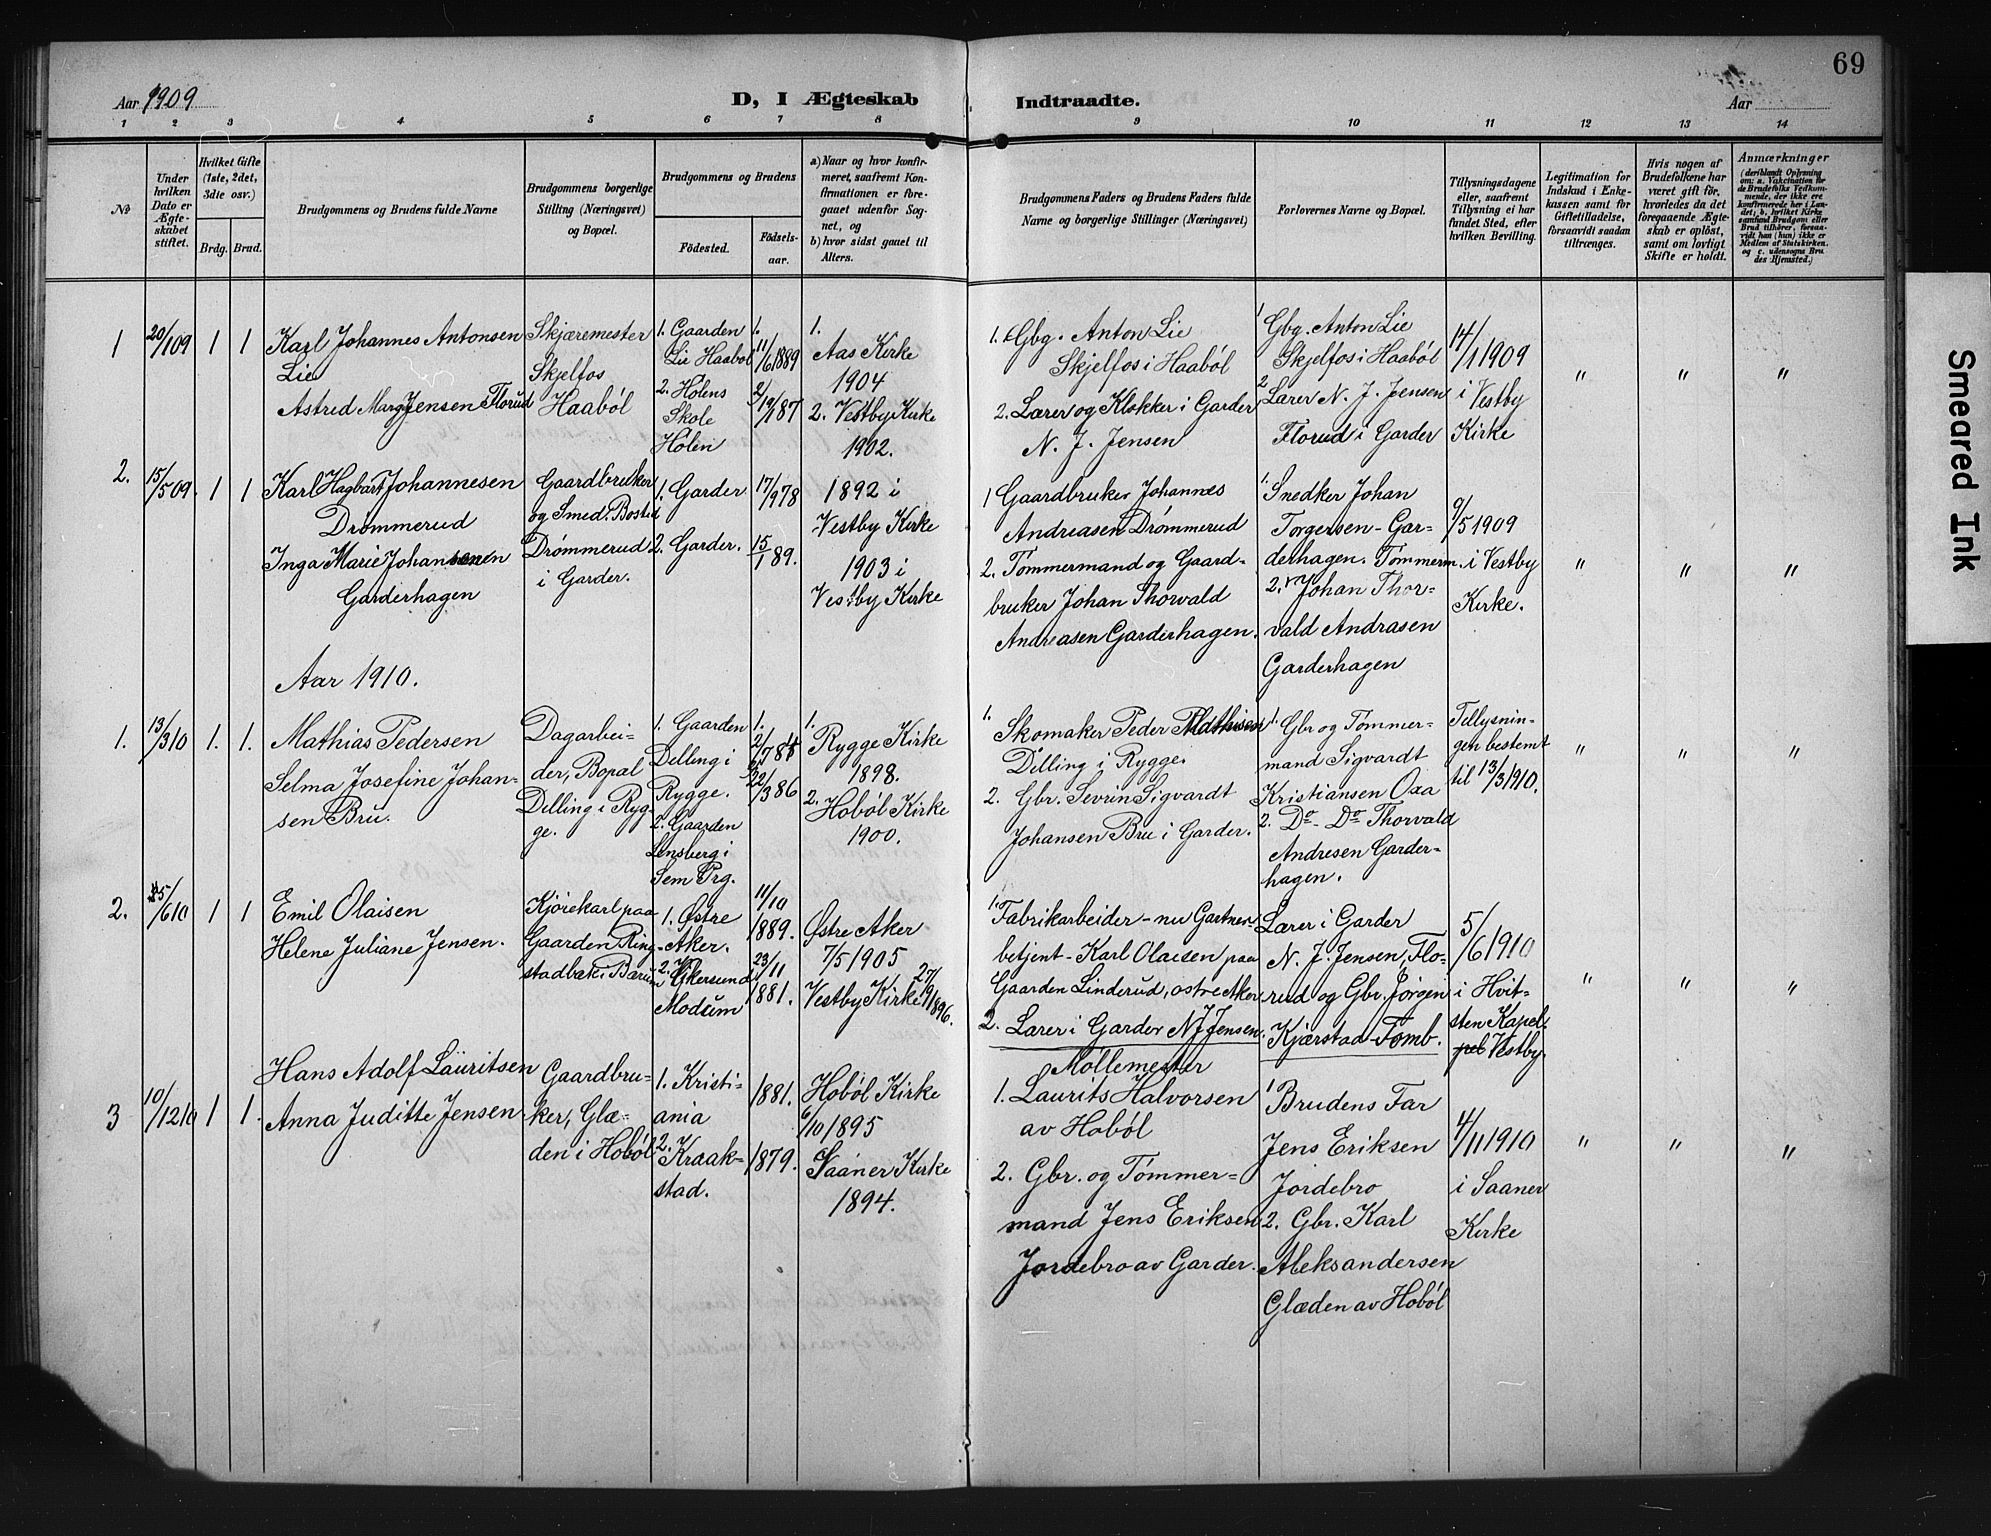 69
Aar 1909
D, I Ægteskab
Indtraadte.
Aar
1 2 3 4 5 6 7 8
9 10 11 12 13 14
No
Under hvilken Dato er Ægteskabet stiftet.
Hvilket Gifte (1ste, 2det, 3die osv.)
Brdg. Brud.
Brudgommens og Brudens fulde Navne
Brudgommens borgerlige Stilling (Næringsvei) og Bopæl.
Brudgommens og Brudens
Fødested.
Fødselsaar.
a) Naar og hvor konfirmeret, saafremt Konfirmationen er foregaaet udenfor Sognet, og
b) hvor sidst gaaet til Alters.
Brudgommens Faders og Brudens Faders fulde Navne og borgerlige Stillinger (Næringsvei)
Forlovernes Navne og Bopæl.
Tillysningsdagene eller, saafremt Tillysning ei har fundet Sted, efter hvilken Bevilling.
Legitimation for Indskud i Enkekassen samt for Giftetilladelse, forsaavidt saadan tiltrænges.
Hvis nogen af Brudefolkene har været gift før, hvorledes da det foregaaende Ægteskab er opløst, samt om lovligt Skifte er holdt.
Anmærkninger
(deriblandt Oplysning om: a. Vakcination for de Brudefolks Vedkommende, der ikke ere konfirmerede her i Landet; b. hvilket Kirkesamfund Brudgom eller Brud tilhører, forsaavidt han (hun) ikke er Medlem af Statskirken, og c. udensogns Brudes Hjemsted.)
1 20/1 09 1 1
Karl Johannes Antonsen
Lie
Astrid Marg. Jensen Florud
Skjæremester
Skjelfos
Haabøl
1. Gaarden
Lie Haabøl
2. Hølens
Skole
Hølen
1.
11/6 1889
2/12 187
1.
Aas Kirke
1904
2. Vestby Kirke
1902.
1. Gbg. Anton Lie
Skjelfos i Haabøl
2. Lærer og Klokker i Garder
N. J. Jensen
1 Gbg. Anton Lie
Skjelfos i Haabøl
2 Lærer N. J. Jensen
Florud i Garder
14/1 1909
i Vestby
Kirke
" " "
2. 15/5 09. 1 1
Karl Hagbart Johannesen
Drømmerud
Inga Marie Johansen
Garderhagen
Gaardbruker
og Smed. Bosted
Drømmerud
i Garder.
1. Garder
2. Garder.
17/9 78
15/1 89.
1892 i
Vestby Kirke
1903 i
Vestby Kirke
1 Gaardbruker Johannes
Andreasen Drømmerud
2. Tømmermand og Gaard-
bruker Johan Thorvald
Andreasen Garderhagen.
1. Snedker Johan
Torgersen - Gar-
derhagen. Tømmerm.
2. Johan Thor-
vald Andrasen
Garderhagen
9/5 1909
i Vestby
Kirke.
" " "
Aar 1910.
1. 13/3 10 1. 1.
Mathias Pedersen
Selma Josefine Johan-
sen Bru.
Dagarbei-
der, Bopæl
Dilling i Ryg-
ge.
1. Gaarden
Dilling i
Rygge.
2. Gaarden
Lensberg i
Sem Prg.
1.
3 86
1.
Rygge Kirke
1898.
2. Hobøl Kirke
1900.
1. Skomaker Peder Mathisen
Dilling i Rygge.
2. Gbr. Sevrin Sigvardt
Johansen Bru i Garder.
1. Gbr og Tømmer-
mand Sigvardt
Kristiansen Oxa
2. Do - Do Thorvald
Andresen Garder-
hagen.
Tillysnin-
gen bestemt
til 13/3 1910.
" " "
2. 25/6 10 1 1
Emil Olaisen
Helene Juliane Jensen.
Kjørekarl paa
Gaarden Ring-
stadbæk i Bærum
1. Østre
Aker.
2. Vikersund
Modum
11/10
1889.
23/11
1881.
Østre Aker
7/5 1905
Vestby Kirke 27/9 1896.
1. Fabrikarbeider - nu Gartner-
betjent - Karl Olaisen paa
Gaarden Linderud, østre Aker
2. Lærer i Garder N J Jensen.
Lærer i Garder
N. J. Jensen, Flo-
rud og Gbr. Jørgen
Kjærstad - Tomb.
5/6 1910
i Hvit-
sten Kapel.
pel Vestby.
" " "
3 10/12 10 1 1.
Hans Adolf Lauritsen
Anna Juditte Jensen
Gaardbru-
ker, Glæ-
den i Hobøl
1. Kristi-
ania
2. Kraak-
stad.
1881.
1879.
Hobøl Kirke
6/10 1895
Saaner Kirke
1894.
Møllemester
1. Laurits Halvorsen
av Hobøl
2. Gbr. og Tømmer-
mand Jens Eriksen
Jordebro av Garder.
1 Brudens Far
Jens Eriksen
Jordebro
2. Gbr. Karl
Aleksandersen
Glæden av Hobøl
4/11 1910
i Saaner
Kirke
" " "
Smeared Ink